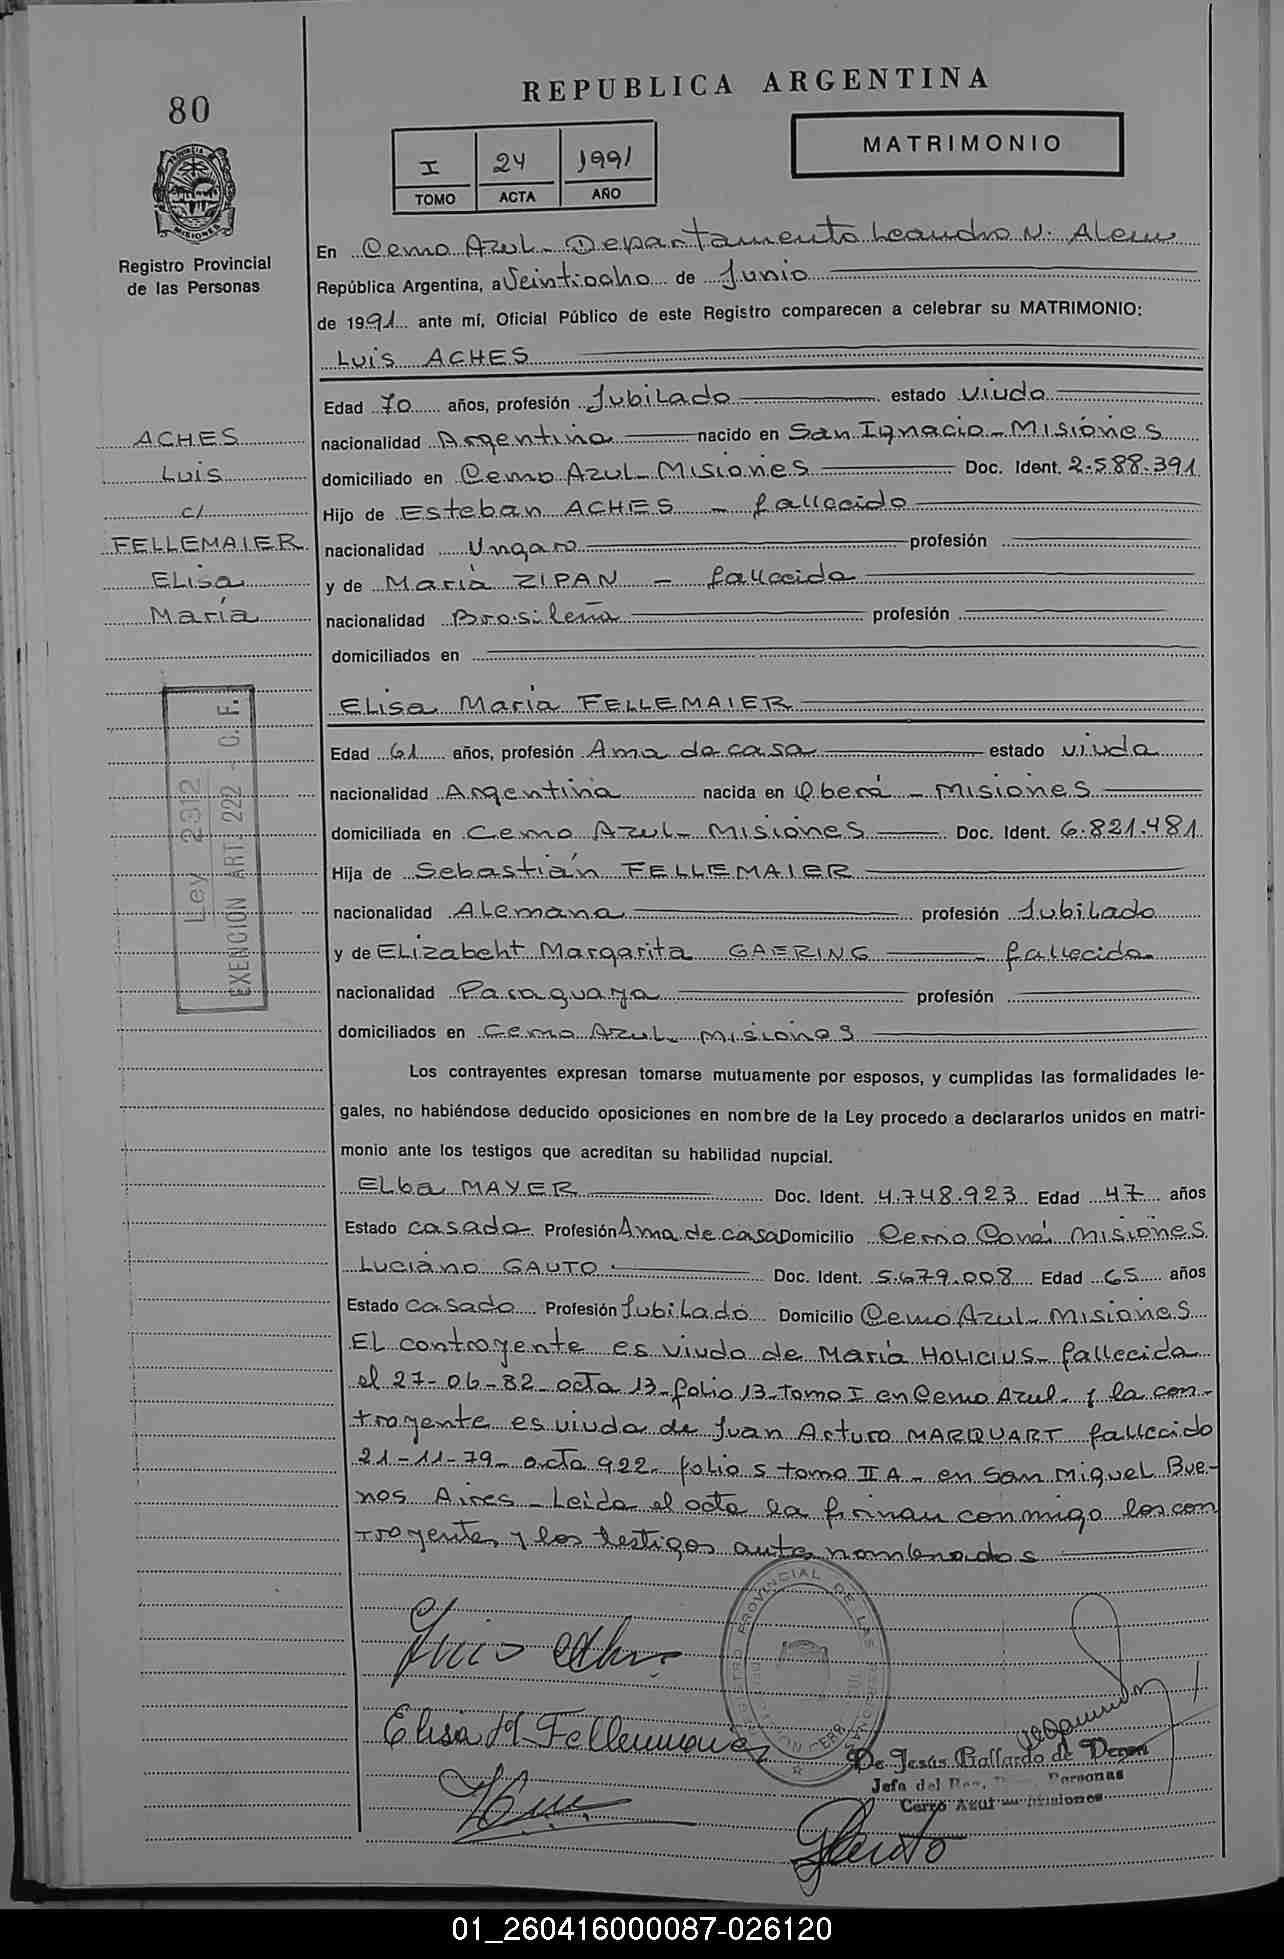 80
REPUBLICA ARGENTINA
MATRIMONIO
I 24 1991
TOMO ACTA AÑO
MISIONES
Registro Provincial
de las Personas
En Cerro Azul - Departamento Leandro N. Alem
República Argentina, a Veintiocho de Junio
de 1991 ante mí, Oficial Público de este Registro comparecen a celebrar su MATRIMONIO:
Luis ACHES
Edad 70 años, profesión Jubilado estado viudo
ACHES
Luis
c/
FELLEMAIER
Elisa
María
nacionalidad Argentina nacido en San Ignacio - Misiones
domiciliado en Cerro Azul - Misiones Doc. Ident. 2.588.391
Hijo de Esteban ACHES - fallecido
nacionalidad Ungaro profesión
y de María ZIPAN - fallecida
nacionalidad Brasileña profesión
domiciliados en
Elisa María FELLEMAIER
Edad 61 años, profesión Ama de casa estado viuda
nacionalidad Argentina nacida en Oberá - Misiones
domiciliada en Cerro Azul - Misiones Doc. Ident. 6.821.481
Hija de Sebastián FELLEMAIER
nacionalidad Alemana profesión Jubilado
y de Elizabeht Margarita GAERING - fallecida
nacionalidad Paraguaya profesión
domiciliados en Cerro Azul - Misiones
Ley 2312
EXENCION ART. 222 - C. F.
Los contrayentes expresan tomarse mutuamente por esposos, y cumplidas las formalidades le-
gales, no habiéndose deducido oposiciones en nombre de la Ley procedo a declararlos unidos en matri-
monio ante los testigos que acreditan su habilidad nupcial.
Elba MAYER Doc. Ident. 4.748.923 Edad 47 años
Estado casada Profesión Ama de casa Domicilio Cerro Corá Misiones
Luciano GAUTO Doc. Ident. 5.679.008 Edad 65 años
Estado casado Profesión Jubilado Domicilio Cerro Azul - Misiones
El contrayente es viudo de María HOLICIUS - fallecida
el 27-06-82 - acta 13 - folio 13 - tomo I en Cerro Azul - y la con-
trayente es viuda de Juan Arturo MARQUART fallecido
21-11-79 - acta 922 - folio 5 tomo II A - en San Miguel Bue-
nos Aires - Leida el acta la firman conmigo los con
trayentes y los testigos antes nombrados
REGISTRO PROVINCIAL DE LAS PERSONAS
Elisa M Fellemaier
De Jesús Gallardo de
Jefa del Personas
Cerro Azul - Misiones
Gauto
01_260416000087-026120